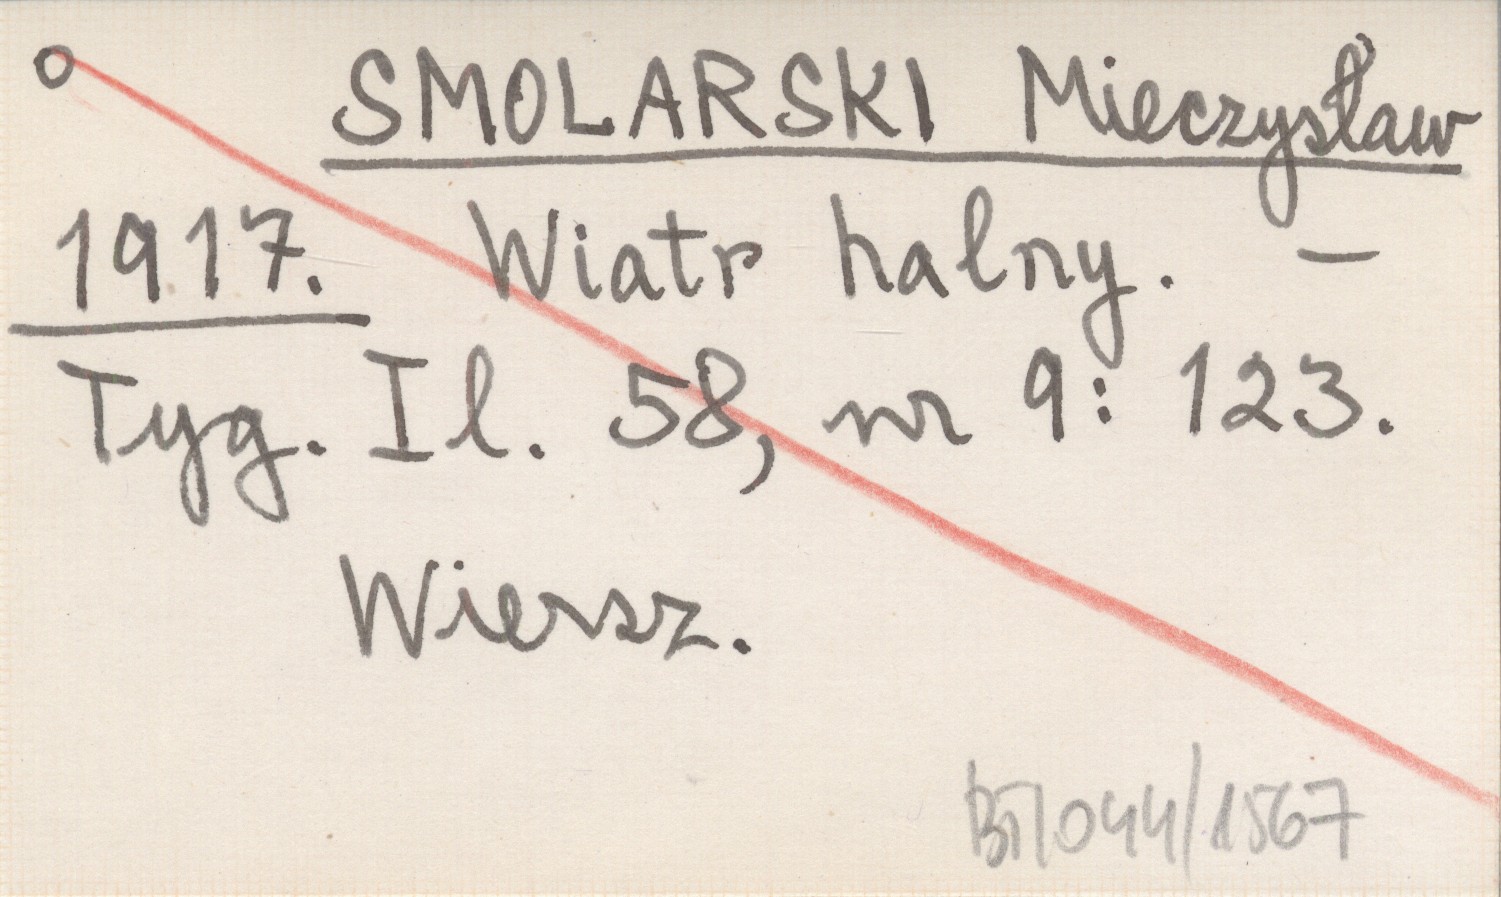 SMOLARSKI Mieczysław
1917. Wiatr halny. –
Tyg. Il. 58, nr 9: 123.
Wiersz.
044/1567